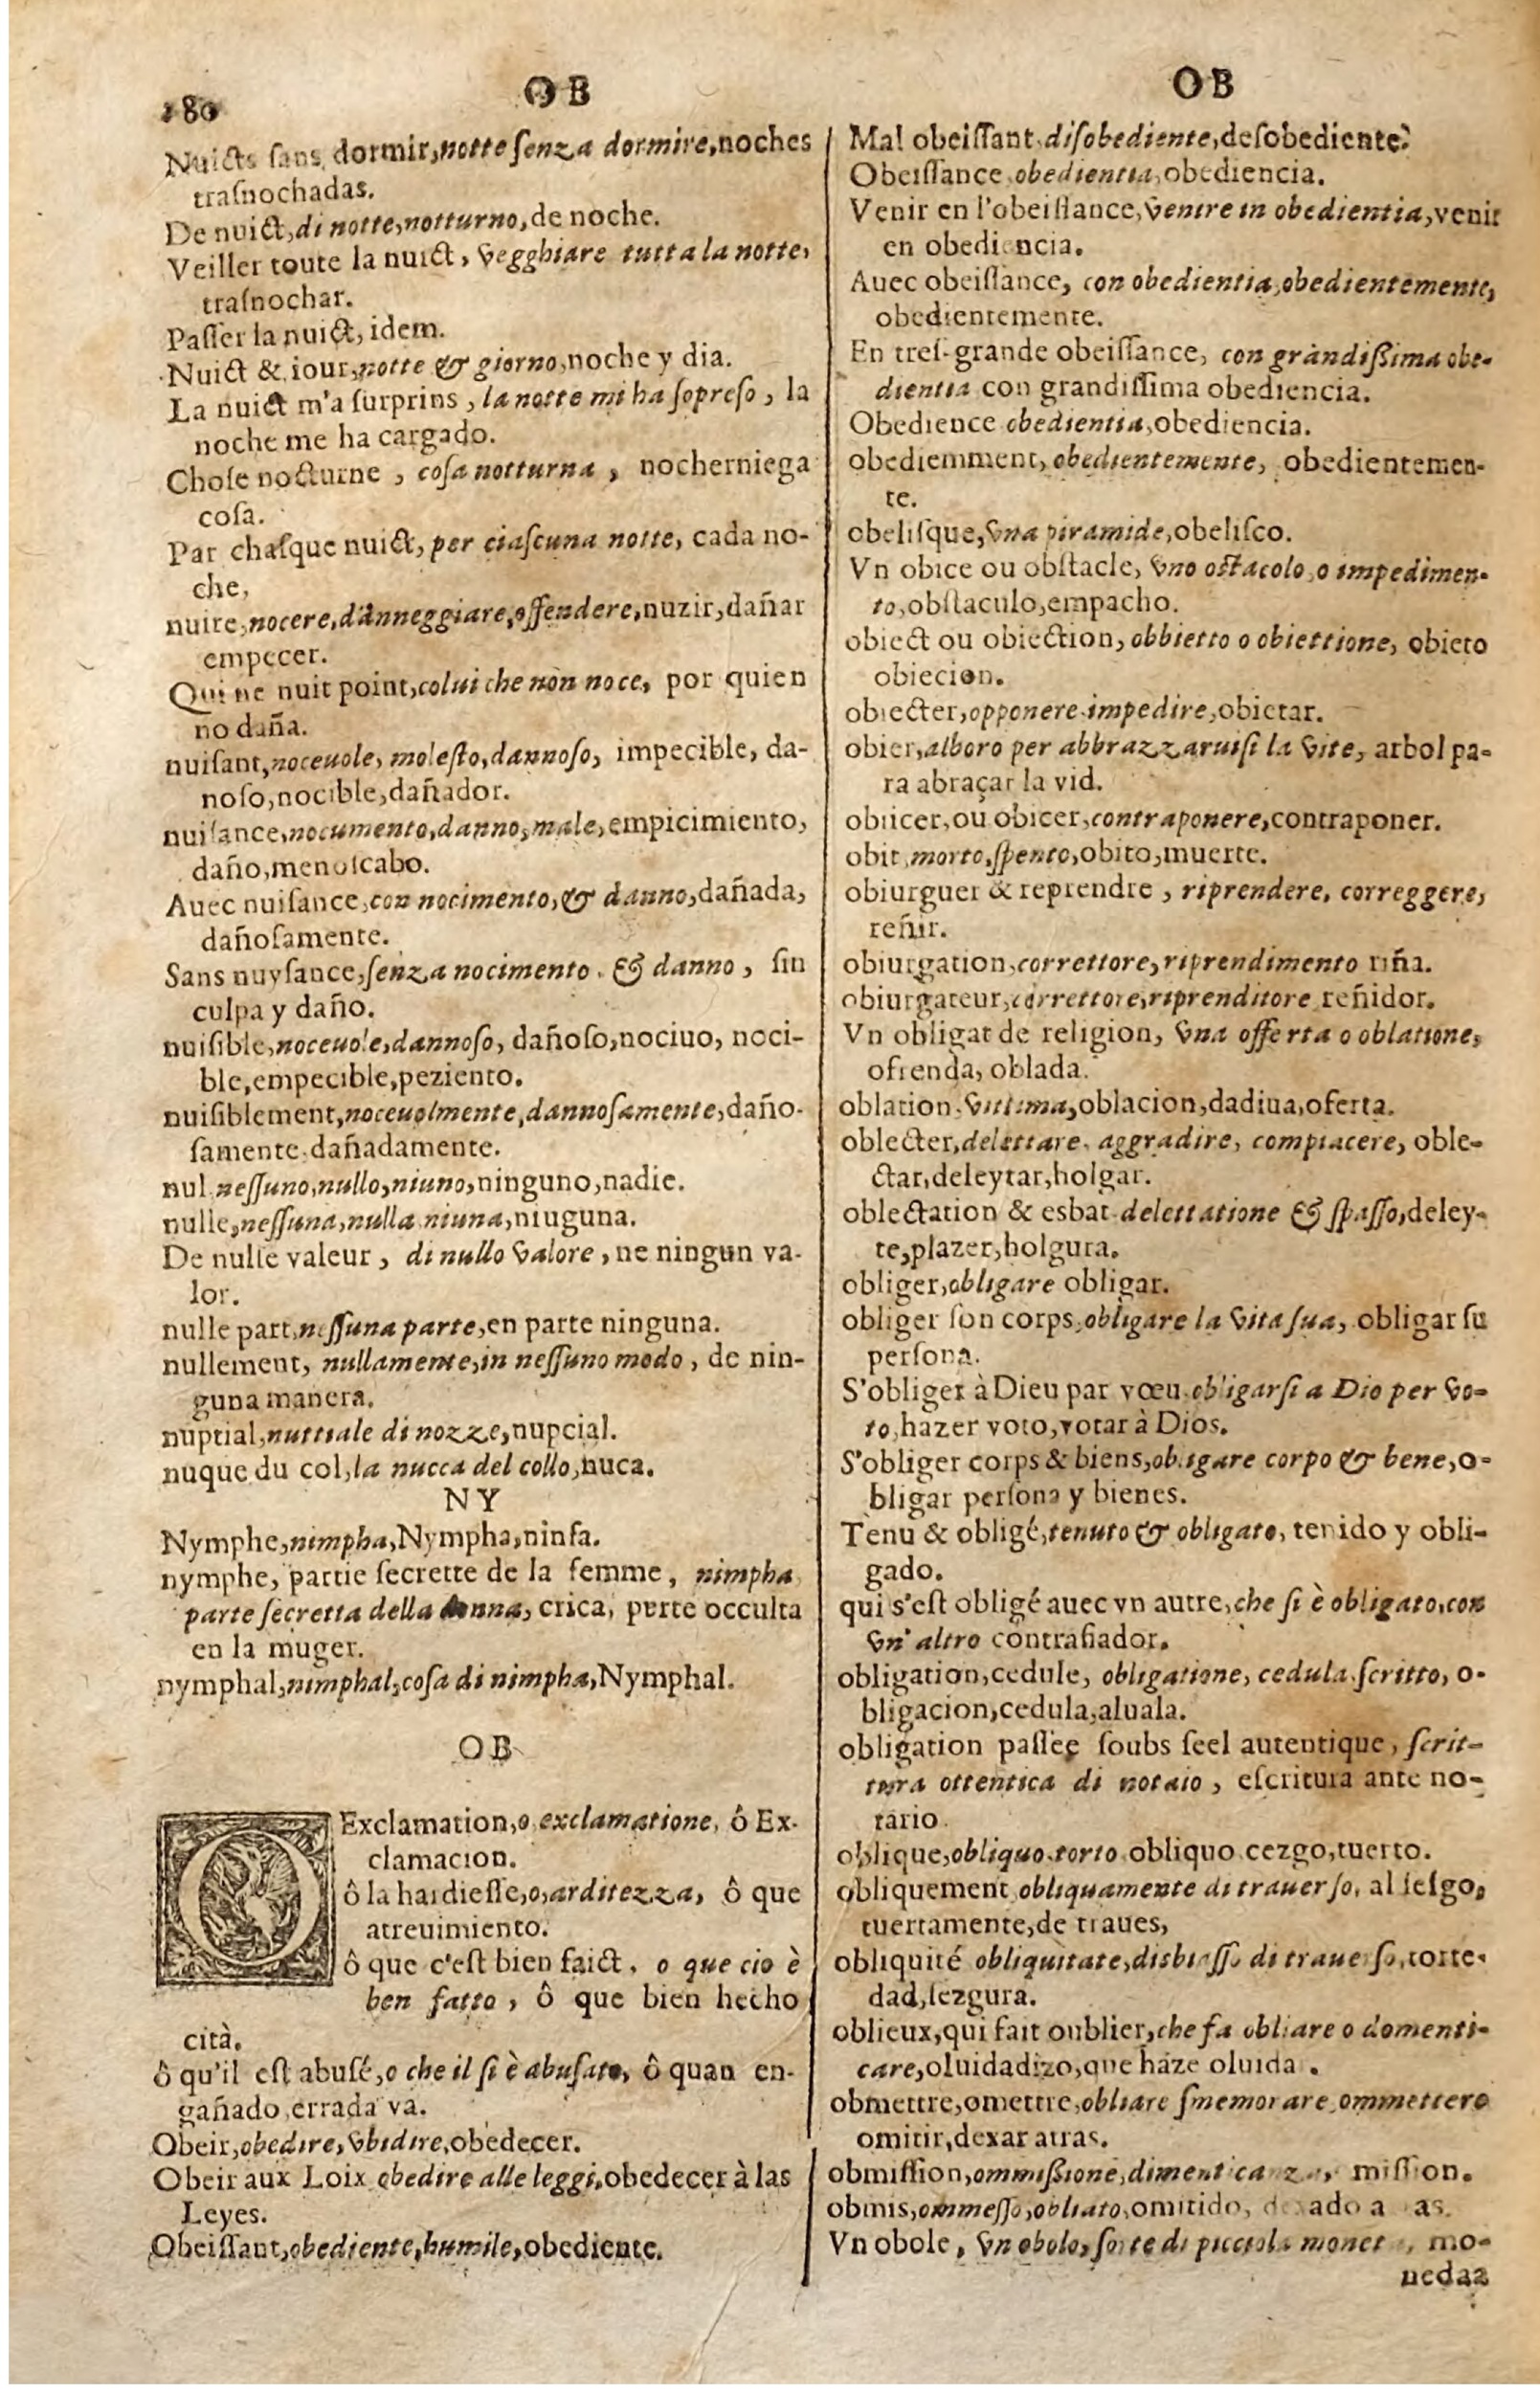 180
OB
OB
Nuicts sans dormir, notte ſenza dormire, noches
traſnochadas.
De nuict, di notte, notturno, de noche.
Veiller toute la nuict, vegghiare tutta la notte,
traſnochar.
Paſſer la nuict, idem.
Nuict & iour, notte & giorno, noche y dia.
La nuict m'a ſurprins, la notte mi ha ſopreſo, la
noche me ha cargado.
Choſe nocturne, coſa notturna, nocherniega
coſa.
Par chaſque nuict, per ciaſcuna notte, cada no-
che,
nuire, nocere, danneggiare, offendere, nuzir, dañar
empecer.
Qui ne nuit point, colui che non noce, por quien
no daña.
nuiſant, noceuole, moleſto, dannoſo, impecible, da-
noſo, nocible, dañador.
nuiſance, nocumento, danno, male, empicimiento,
daño, menoſcabo.
Auec nuiſance, con nocimento, & danno, dañada,
dañoſamente.
Sans nuyſance, ſenza nocimento. & danno, ſin
culpa y daño.
nuiſible, noceuole, dannoſo, dañoſo, nociuo, noci-
ble, empecible, peziento.
nuiſiblement, noceuolmente, dannoſamente, daño-
ſamente. dañadamente.
nul. neſſuno, nullo, niuno, ninguno, nadie.
nulle, neſſuna, nulla niuna, niuguna.
De nulle valeur, di nullo valore, ne ningun va-
lor.
nulle part, neſſuna parte, en parte ninguna.
nullement, nullamente, in neſſuno modo, de nin-
guna manera.
nuptial, nuttiale di nozze, nupcial.
nuque du col, la nucca del collo, nuca.
NY
Nymphe, nimpha, Nympha, ninfa.
nymphe, partie ſecrette de la femme, nimpha
parte ſecretta della donna, crica, perte occulta
en la muger.
nymphal, nimphal, coſa di nimpha, Nymphal.
OB
O Exclamation, o exclamatione, ô Ex-
clamacion.
ô la hardieſſe, o, arditezza, ô que
atreuimiento.
ô que c'eſt bien faict, o que cio è
ben fatto, ô que bien hecho
cità.
ô qu'il eſt abuſé, o che il ſi è abuſato, ô quan en-
gañado errada va.
Obeir, obedire, vbidire, obedecer.
Obeir aux Loix obedire alle leggi, obedecer à las
Leyes.
Obeiſſant, obediente, humile, obediente.
Mal obeiſſant, diſobediente, deſobediente.
Obeiſſance obedientia, obediencia.
Venir en l'obeiſſance, venire in obedientia, venir
en obediencia.
Auec obeiſſance, con obedientia, obedientemente,
obedientemente.
En treſ-grande obeiſſance, con grandiſſima obe-
dientia con grandiſſima obediencia.
Obedience obedientia, obediencia.
obediemment, obedientemente, obedientemen-
te.
obeliſque, vna piramide, obeliſco.
Vn obice ou obſtacle, vno oſtacolo, o impedimen-
to, obſtaculo, empacho.
obiect ou obiection, obbietto o obiettione, obieto
obiecion.
obiecter, opponere impedire, obietar.
obier, alboro per abbrazzaruiſi la vite, arbol pa-
ra abraçar la vid.
obiicer, ou obicer, contraponere, contraponer.
obit, morto, ſpento, obito, muerte.
obiurguer & reprendre, riprendere, correggere,
reñir.
obiurgation, correttore, riprendimento riña.
obiurgateur, correttore, riprenditore reñidor.
Vn obligat de religion, vna offerta o oblatione,
ofrenda, oblada.
oblation. vittima, oblacion, dadiua, oferta.
oblecter, delettare. aggradire, compiacere, oble-
ctar, deleytar, holgar.
oblectation & esbat delettatione & ſpaſſo, deley-
te, plazer, holgura.
obliger, obligare obligar.
obliger ſon corps, obligare la vita ſua, obligar ſu
perſona.
S'obliger à Dieu par vœu. obligarſi a Dio per vo-
to, hazer voto, votar à Dios.
S'obliger corps & biens, obligare corpo & bene, o-
bligar perſona y bienes.
Tenu & obligé, tenuto & obligato, tenido y obli-
gado.
qui s'eſt obligé auec vn autre, che ſi è obligato, con
vn' altro contrafiador.
obligation, cedule, obligatione, cedula. ſcritto, o-
bligacion, cedula, aluala.
obligation paſſee ſoubs ſeel autentique, ſcrit-
tura ottentica di notaio, eſcritura ante no-
tario.
oblique, obliquo. torto obliquo cezgo, tuerto.
obliquement obliquamente di trauerſo, al ſeſgo,
tuertamente, de traues,
obliquité obliquitate, disbiaſſo di trauerſo, torte-
dad, ſezgura.
oblieux, qui fait oublier, che fa obliare o domenti-
care, oluidadizo, que haze oluida.
obmettre, omettre, obliare ſmemorare, ommettere
omitir, dexar atras.
obmiſſion, ommiſſione, dimenticanza, miſſion.
obmis, ommeſſo, obliato, omitido,
Vn obole, vn obolo, ſorte di picciola monet, mo-
nedaa